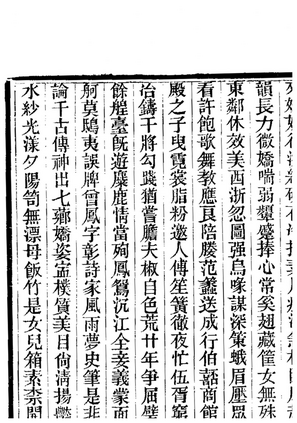 韻長力微嬌喘弱顰蹙捧心常奚翅藏筐女無殊
東鄰休效美西浙忽圖强烏喙謀深策蛾眉壓眾
看許飽歌舞教應艮陪滕范蠡送成行伯嚭商館
殿之子曳霓裳脂粉邀人傅笙簧徹夜忙伍胥窮
冶鑄干將勾踐猶嘗膽夫椒自色荒廿年爭屆璧
餘艎臺旣遊麋鹿情當殉鳳鴛沉江全妾義蒙面
舸莫鴟夷誤牌曾風字彰詩家風雨夢史筆是非
論千古傳神出七薌嬌姿孟樸質美目尙淸揚
水紗光漾夕陽笥無漂母飯竹是女兒箱素柰閒